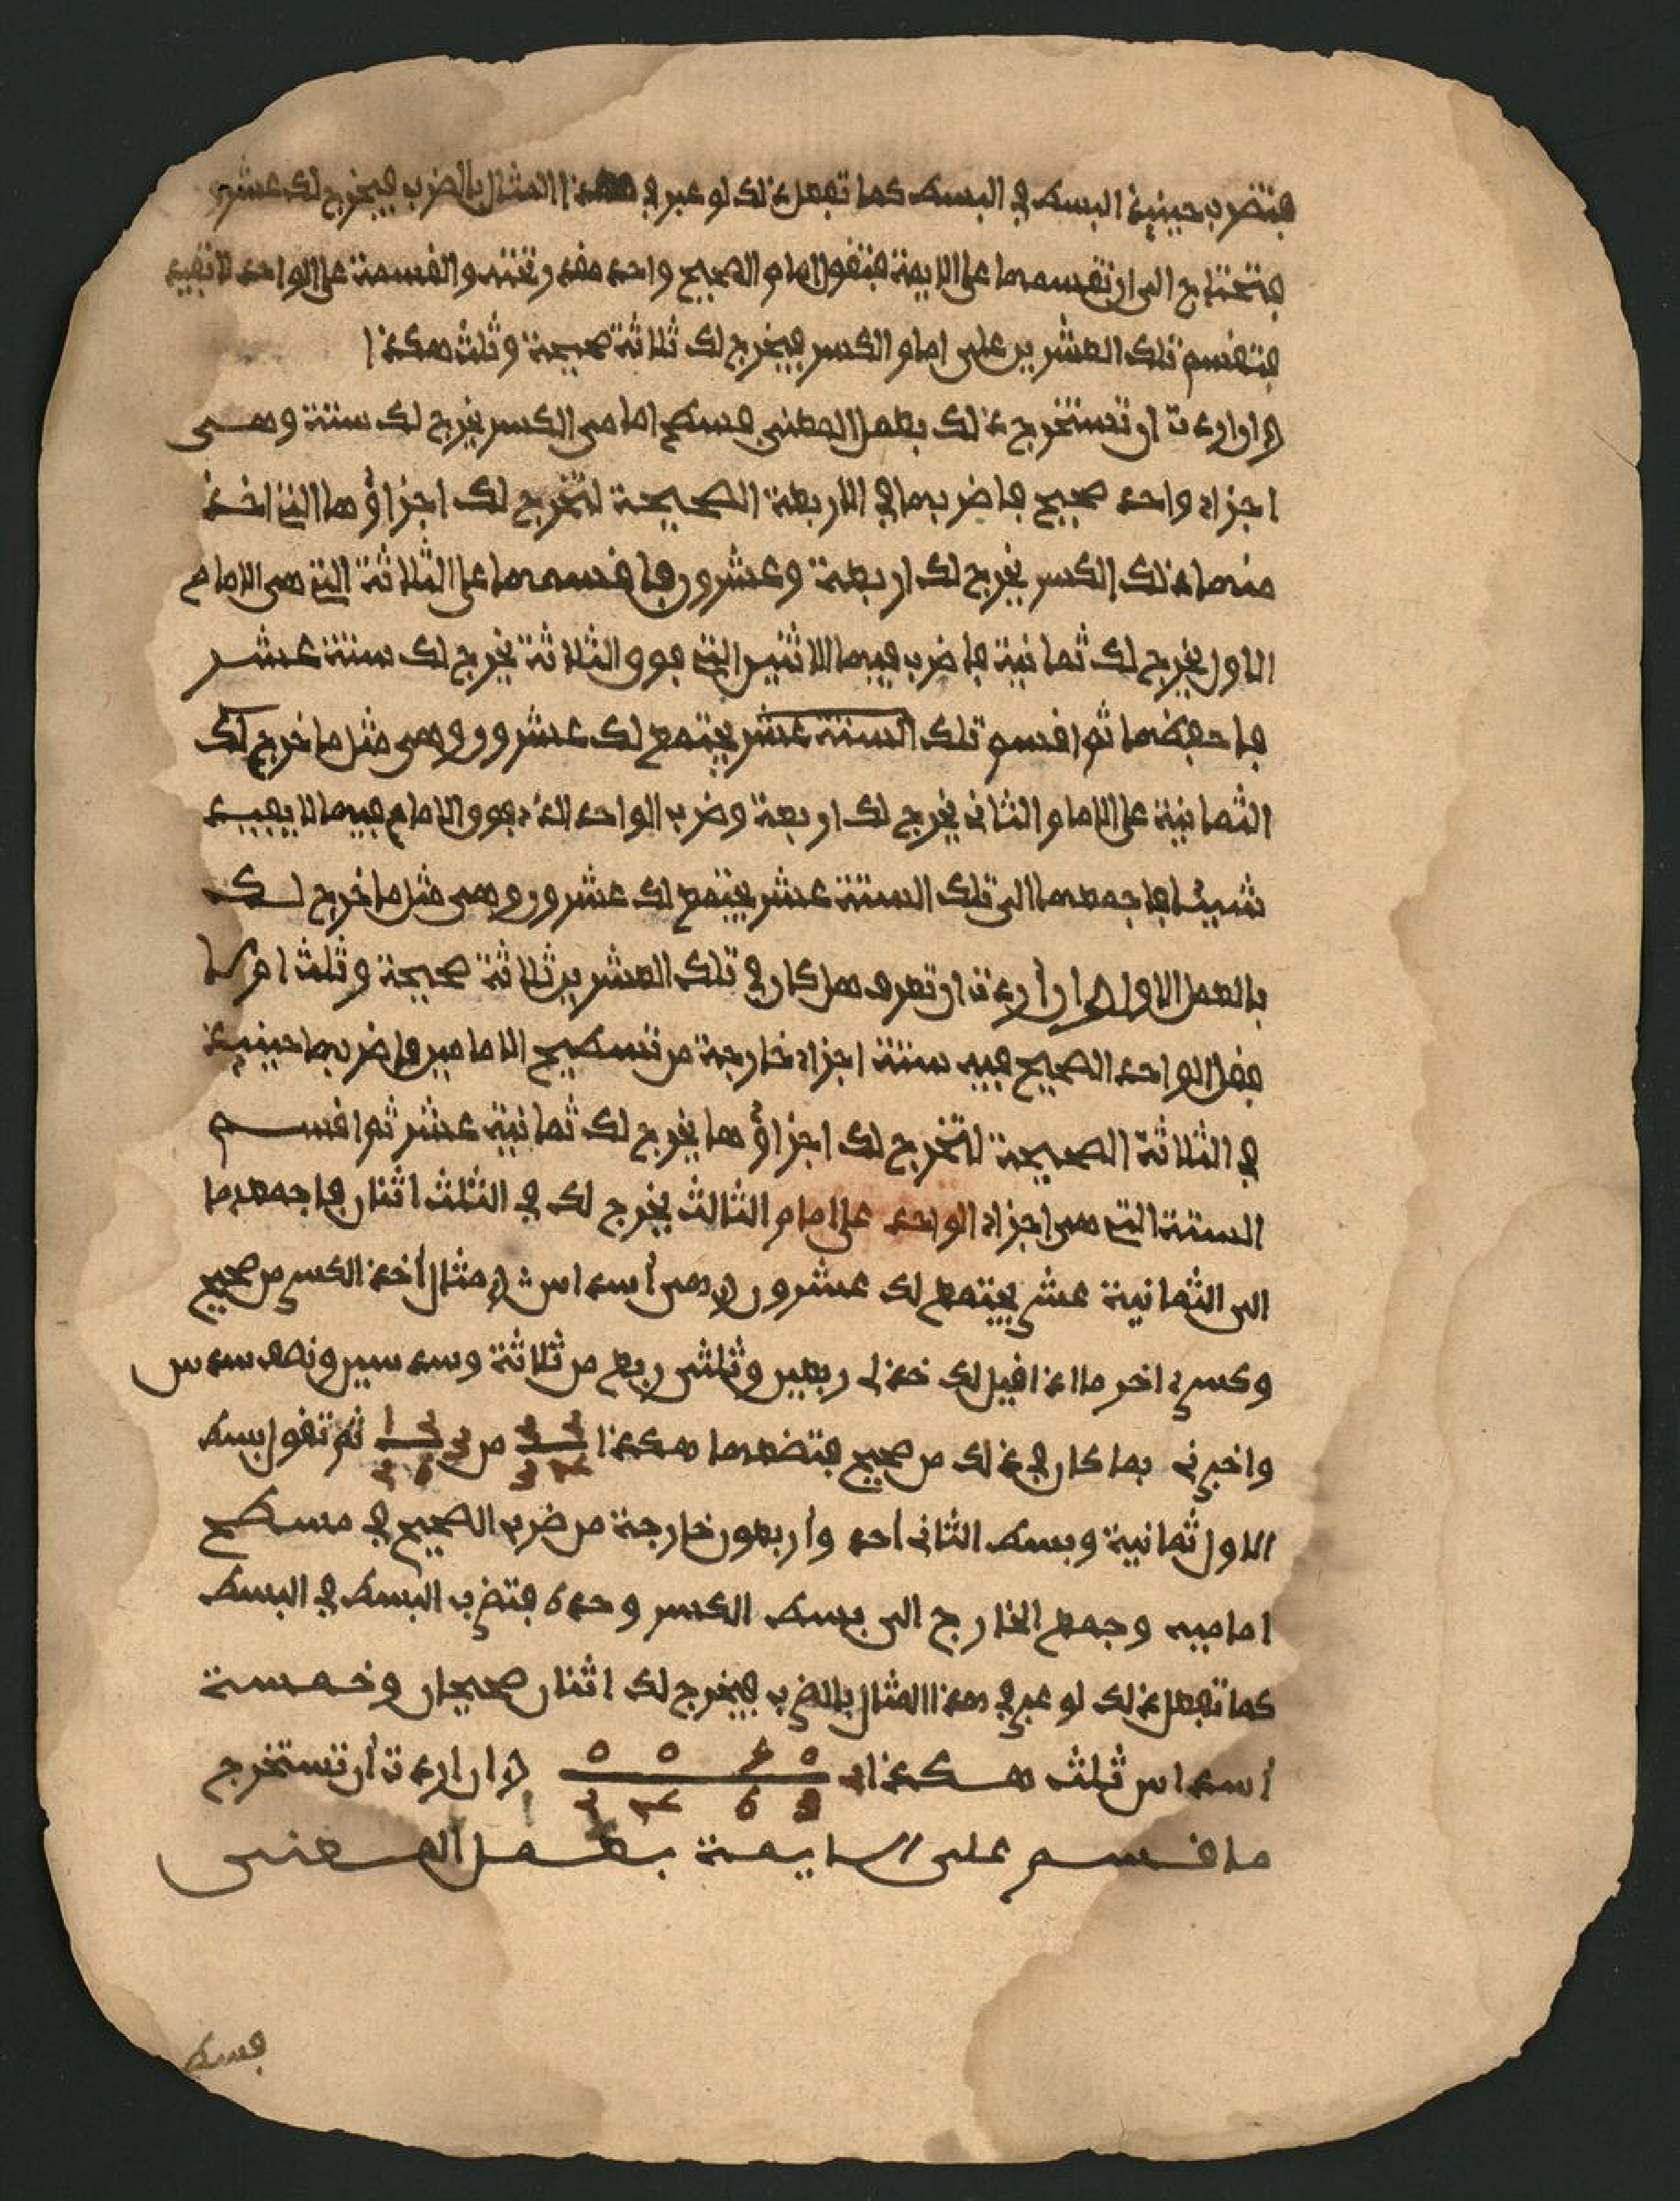 فتضرب حينئذ البسط في البسط كما تفعل ذلك لو عبر في هذا المثال بالضرب فيخرج لك عشرون
فتحتاج الى ان تقسمها على الايمة فتقول امام الصحيح واحد مقدر تحته والقسمة على الواحد لا تفيد
فتقسم تلك العشرين على امام الكسر فيخرج لك ثلاثة صحيحة وثلث هكذا
وان اردت ان تستخرج ذلك بعمل المعنى فسطح امامى الكسر يخرج لك ستة وهى
اجزاء واحد صحيح فاضربها في الاربعة الصحيحة لتخرج لك اجزاؤها التي اخذ
منها ذلك الكسر يخرج لك اربعة وعشرون فاقسمها على الثلاثة التي هى الامام
الاول يخرج لك ثمانية فاضرب فيها الاثنين التي فوق الثلاثة يخرج لك ستة عشر
فاحفظها ثم اقسم تلك الستة عشر يجتمع لك عشرون وهى مثل ما خرج لك
الثمانية على الامام الثاني يخرج لك اربعة وضرب الواحد الذي فوق الامام فيها لا يفيد
شيئا فاجمعها الى تلك الستة عشر يجتمع لك عشرون وهى مثل ما خرج لك
بالعمل الاول وان أردت ان تعرف هل كان في تلك العشرين ثلاثة صحيحة وثلث ام لا
فقل الواحد الصحيح فيه ستة اجزاء خارجة من تسطيح الامامين فاضربها حينئذ
في الثلاثة الصحيحة لتخرج لك اجزاؤها يخرج لك ثمانية عشر ثم اقسم
الستة التي هى اجزاء الواحد على امام الثالث يخرج لك في الثلث اثنان فاجمعهما
الى الثمانية عشر يجتمع لك عشرون وهى أسداس ومثال أخذ الكسر من صحيح
وكسر اخر ما اذا قيل لك خذ لى ربعين وثلثى ربع من ثلاثة وسدسين ونصف سدس
واخبرنى بما كان في ذلك من صحيح فتضعهما هكذا ‎2 2‎ من ‎3 2 1‎ ثم تقول بسط
‎3 4‎ ‎2 6‎
الاول ثمانية وبسط الثانى أحد وأربعون خارجة من ضرب الصحيح في مسطح
اماميه وجمع الخارج الى بسط الكسر وحده فتضرب البسط في البسط
كما تفعل ذلك لو عبر في هذا المثال بالضرب فيخرج لك اثنان صحيحان وخمسة
أسداس ثلث هكذا وان اردت أن تستخرج
ما قسم على الايمة بعمل المعنى
فسط